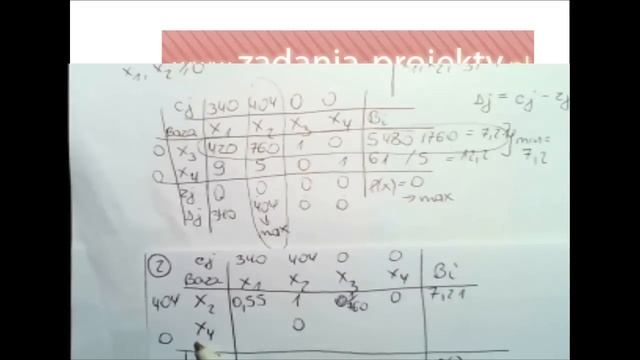 www.zadania-projekty.pl
x₁, x₂ ≥ 0
Δj = cj - zj
cj 340 404 0 0
Baza x₁ x₂ x₃ x₄ Bi
0 x₃ 420 760 1 0 5480/760 = 7,21 } min =
0 x₄ 9 5 0 1 61 / 5 = 12,2 7,2
zj 0 0 0 0 f(x) = 0
Δj 340 404 0 0 → max
↓ max
② cj 340 404 0 0
Baza x₁ x₂ x₃ x₄ Bi
404 x₂ 0,55 1 0 7,21
0 x₄ 0